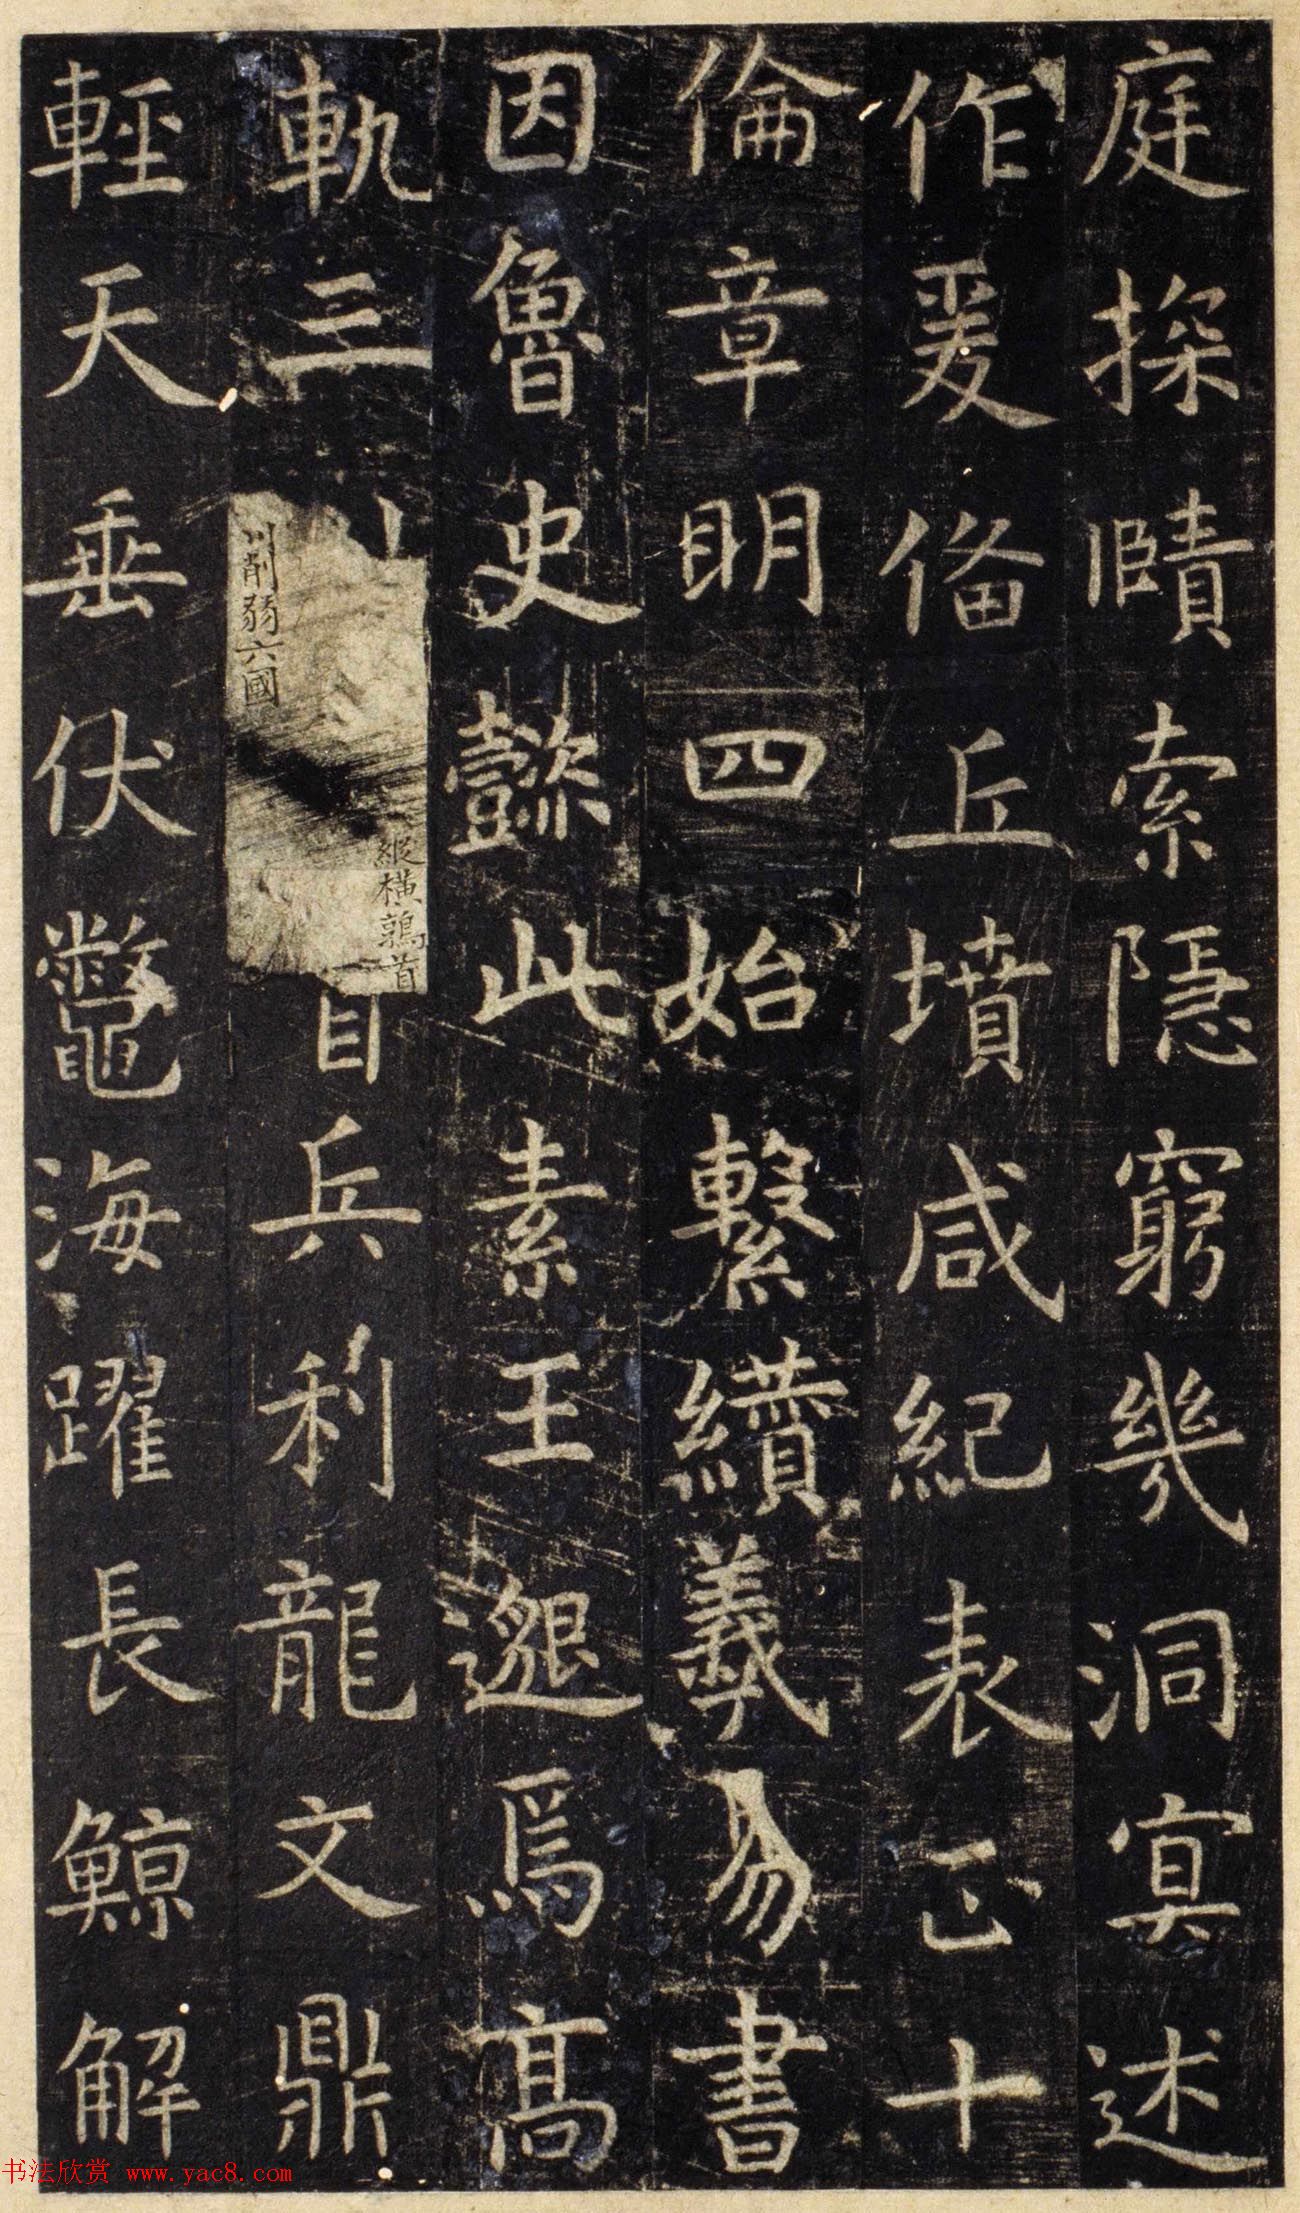 庭探賾索隱窮幾洞寘述
作爰俻丘墳咸紀表正十
倫章明四始繫纘羲易書
因魯史懿此素王邈焉高
軌三川
縱橫鶉首
川削弱六國
首兵利龍文鼎
輕天垂伏鼈海躍長鯨解
书法欣赏 www.yac8.com